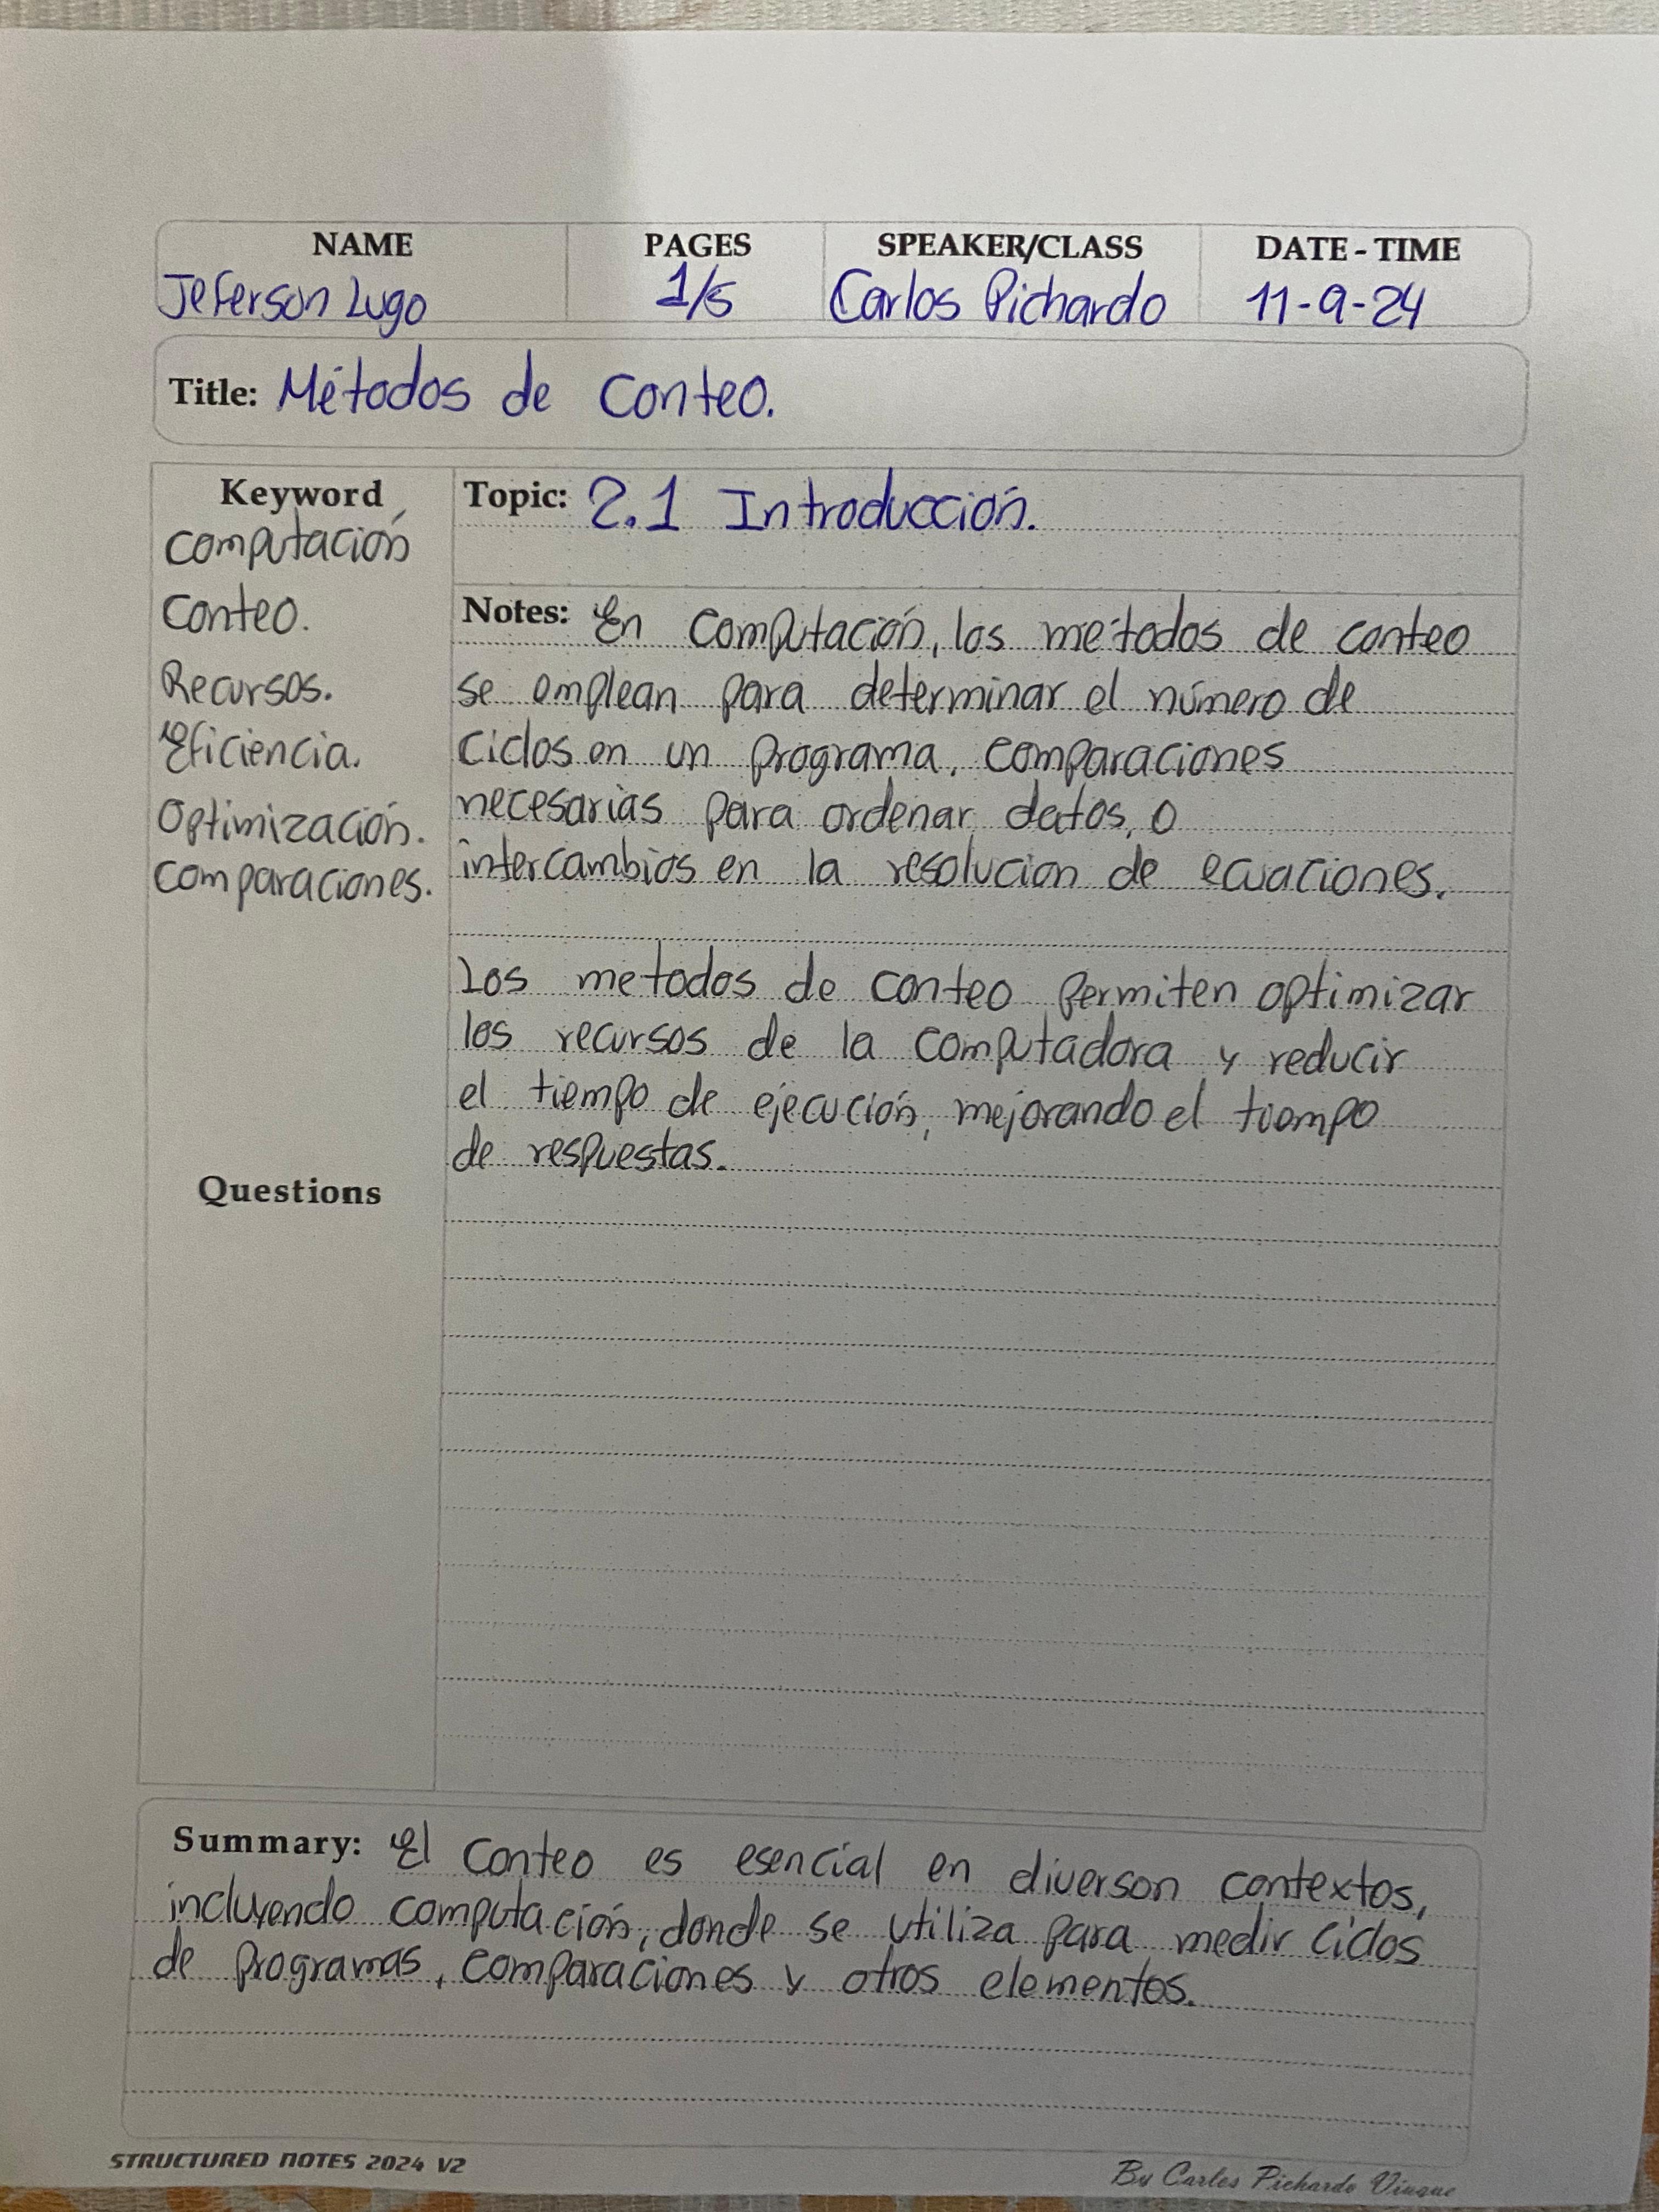 NAME PAGES SPEAKER/CLASS DATE - TIME
Jeferson Lugo 1/5 Carlos Pichardo 11-9-24
Title: Métodos de conteo.
Keyword
computación
Conteo.
Recursos.
Eficiencia.
Optimización.
Comparaciones.
Questions
Topic: 2.1 Introducción.
Notes: En computación, los métodos de conteo
se emplean para determinar el número de
ciclos en un programa, comparaciones
necesarias para ordenar datos, o
intercambios en la resolucion de ecuaciones.
Los metodos de conteo permiten optimizar
los recursos de la computadora y reducir
el tiempo de ejecución, mejorando el tiempo
de respuestas.
Summary: El conteo es esencial en diverson contextos,
incluyendo computación, donde se utiliza para medir ciclos
de programas, comparaciones y otros elementos.
STRUCTURED NOTES 2024 V2
By Carlos Pichardo Viuque